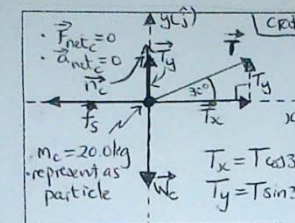 y(ĵ)
CRA
· F⃗netc=0
· a⃗netc=0
n⃗c
T⃗y
T⃗
30°
Ty
f⃗s
T⃗x
x
· mc=20.0kg
· represent as
particle
W⃗c
Tx=Tcos3
Ty=Tsin3